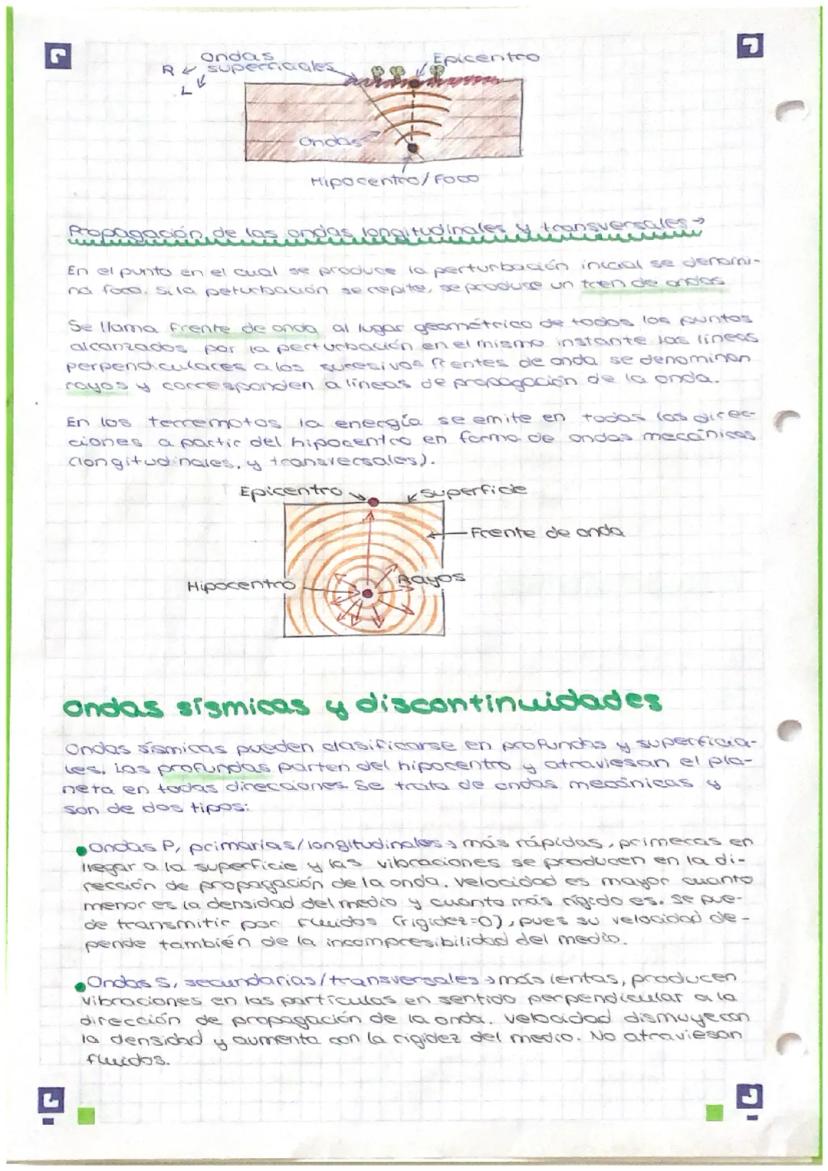 Ondas
R superficiales Epicentro
L
Ondas
Hipocentro/Foco
Propagación de las ondas longitudinales y transversales →
En el punto en el cual se produce la perturbación inicial se denomi-
na foco. Si la peturbación se repite, se produce un tren de ondas
Se llama frente de onda al lugar geométrico de todos los puntos
alcanzados por la perturbación en el mismo instante las líneas
perpendiculares a los sucesivos frentes de onda se denominan
rayos y corresponden a líneas de propagación de la onda.
En los terremotos la energía se emite en todas las direc-
ciones a partir del hipocentro en forma de ondas mecánicas
(longitudinales, y transversales).
Epicentro superficie
Frente de onda
Hipocentro Rayos
Ondas sísmicas y discontinuidades
Ondas sísmicas pueden clasificarse en profundas y superficia-
les. Las profundas parten del hipocentro y atraviesan el pla-
neta en todas direcciones Se trata de ondas mecánicas y
son de dos tipos:
Ondas P, primarias/longitudinales → más rápidas, primeras en
llegar a la superficie y las vibraciones se producen en la di-
rección de propagación de la onda. Velocidad es mayor cuanto
menor es la densidad del medio y cuánto más rígido es. Se pue-
de transmitir por fluidos (rigidez=0), pues su velocidad de-
pende también de la incompresibilidad del medio.
Ondas S, secundarias/transversales → más lentas, producen
vibraciones en las partículas en sentido perpendicular a la
dirección de propagación de la onda. Velocidad dismuye con
la densidad y aumenta con la rigidez del medio. No atraviesan
fluidos.